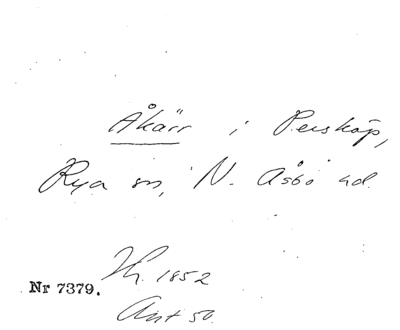 Åkärr i Perskåp,
Rya sn, N. Åsbo hd.
Nr 7379.
1852
Ant 50.